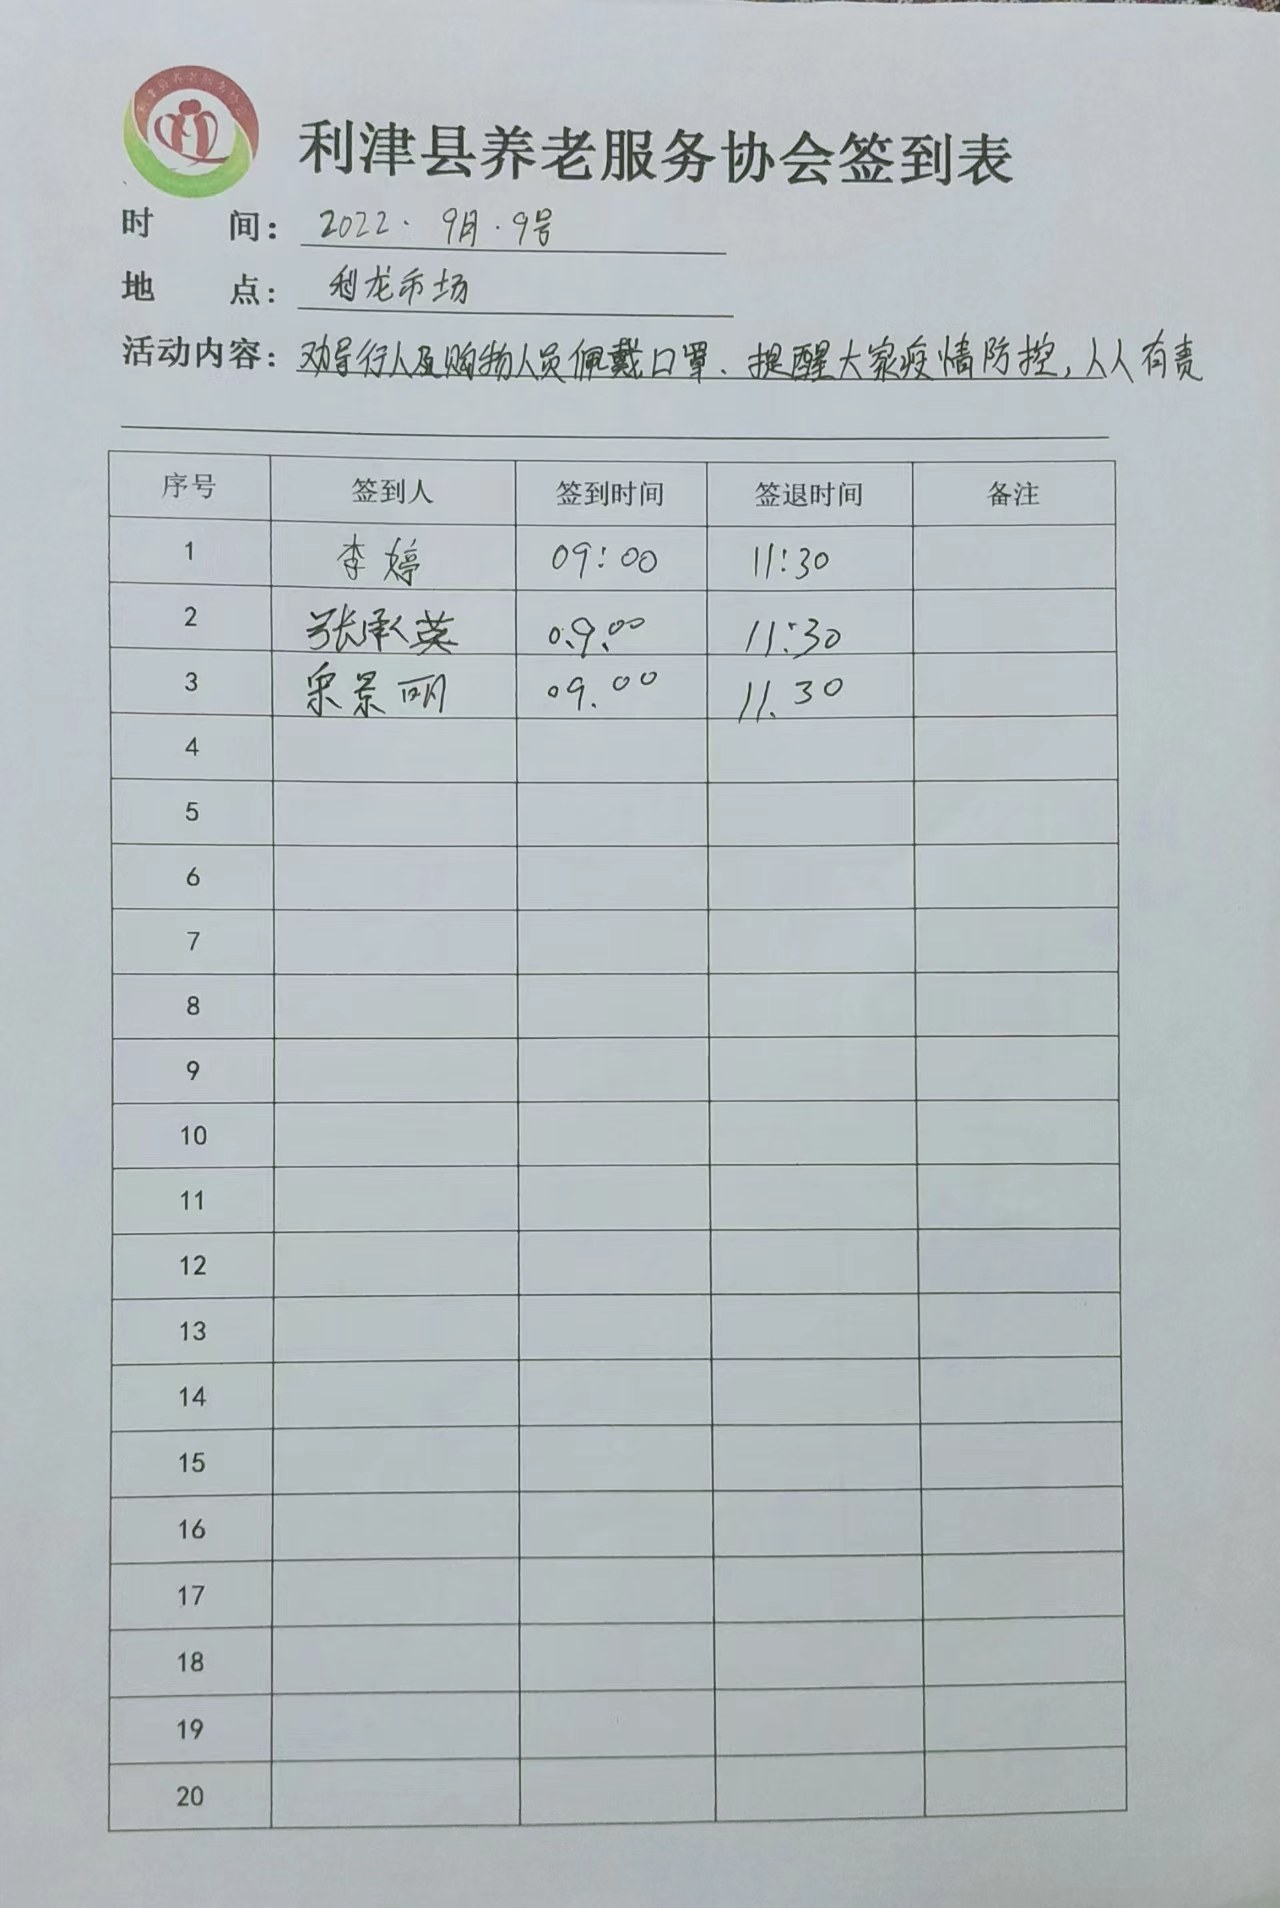 利津县养老服务协会
利津县养老服务协会签到表
时 间： 2022. 9月.9号
地 点： 利龙市场
活动内容：劝导行人及购物人员佩戴口罩、提醒大家疫情防控，人人有责
序号 签到人 签到时间 签退时间 备注
1 李婷 09:00 11:30
2 张承英 09:00 11:30
3 景明 09.00 11.30
4
5
6
7
8
9
10
11
12
13
14
15
16
17
18
19
20